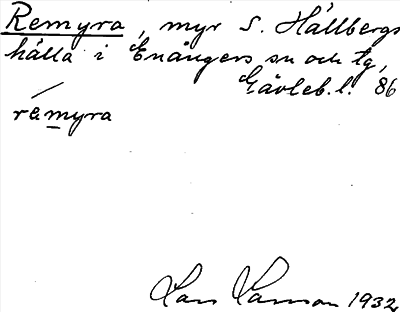 Remyra, myr S. Hällbergs
hälla i Enångers sn och tg,
Gävleb. l. 86
rémyra
Lars Larsson 1932